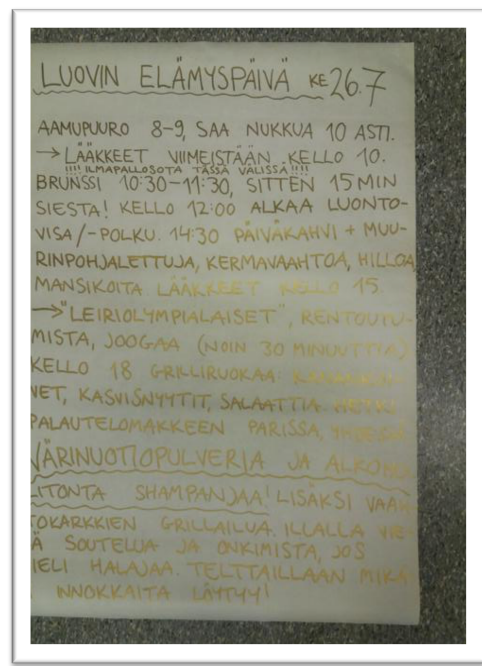 LUOVIN ELÄMYSPÄIVÄ KE 26.7
AAMUPUURO 8-9, SAA NUKKUA 10 ASTI.
→ LÄÄKKEET VIIMEISTÄÄN KELLO 10.
!!!! ILMAPALLOSOTA TÄSSÄ VÄLISSÄ!!!!
BRUNSSI 10:30-11:30, SITTEN 15 MIN
SIESTA! KELLO 12:00 ALKAA LUONTO-
VISA/-POLKU. 14:30 PÄIVÄKAHVI + MUU-
RINPOHJALETTUJA, KERMAVAAHTOA, HILLOA,
MANSIKOITA. LÄÄKKEET KELLO 15.
→ "LEIRIOLYMPIALAISET", RENTOUTU-
MISTA, JOOGAA (NOIN 30 MINUUTTIA)
KELLO 18 GRILLIRUOKAA:
ET, KASVISNYYTIT, SALAATTIA. HETKI
PALAUTELOMAKKEEN PARISSA,
VÄRINUOTIOPULVERIA JA ALKOHO
LITONTA SHAMPANJAA! LISÄKSI VAAH
TOKARKKIEN GRILLAILUA. ILLALLA VIE
Ä SOUTELUA JA ONKIMISTA, JOS
IELI HALAJAA. TELTTAILLAAN MIKÄ
INNOKKAITA LÖYTYY!